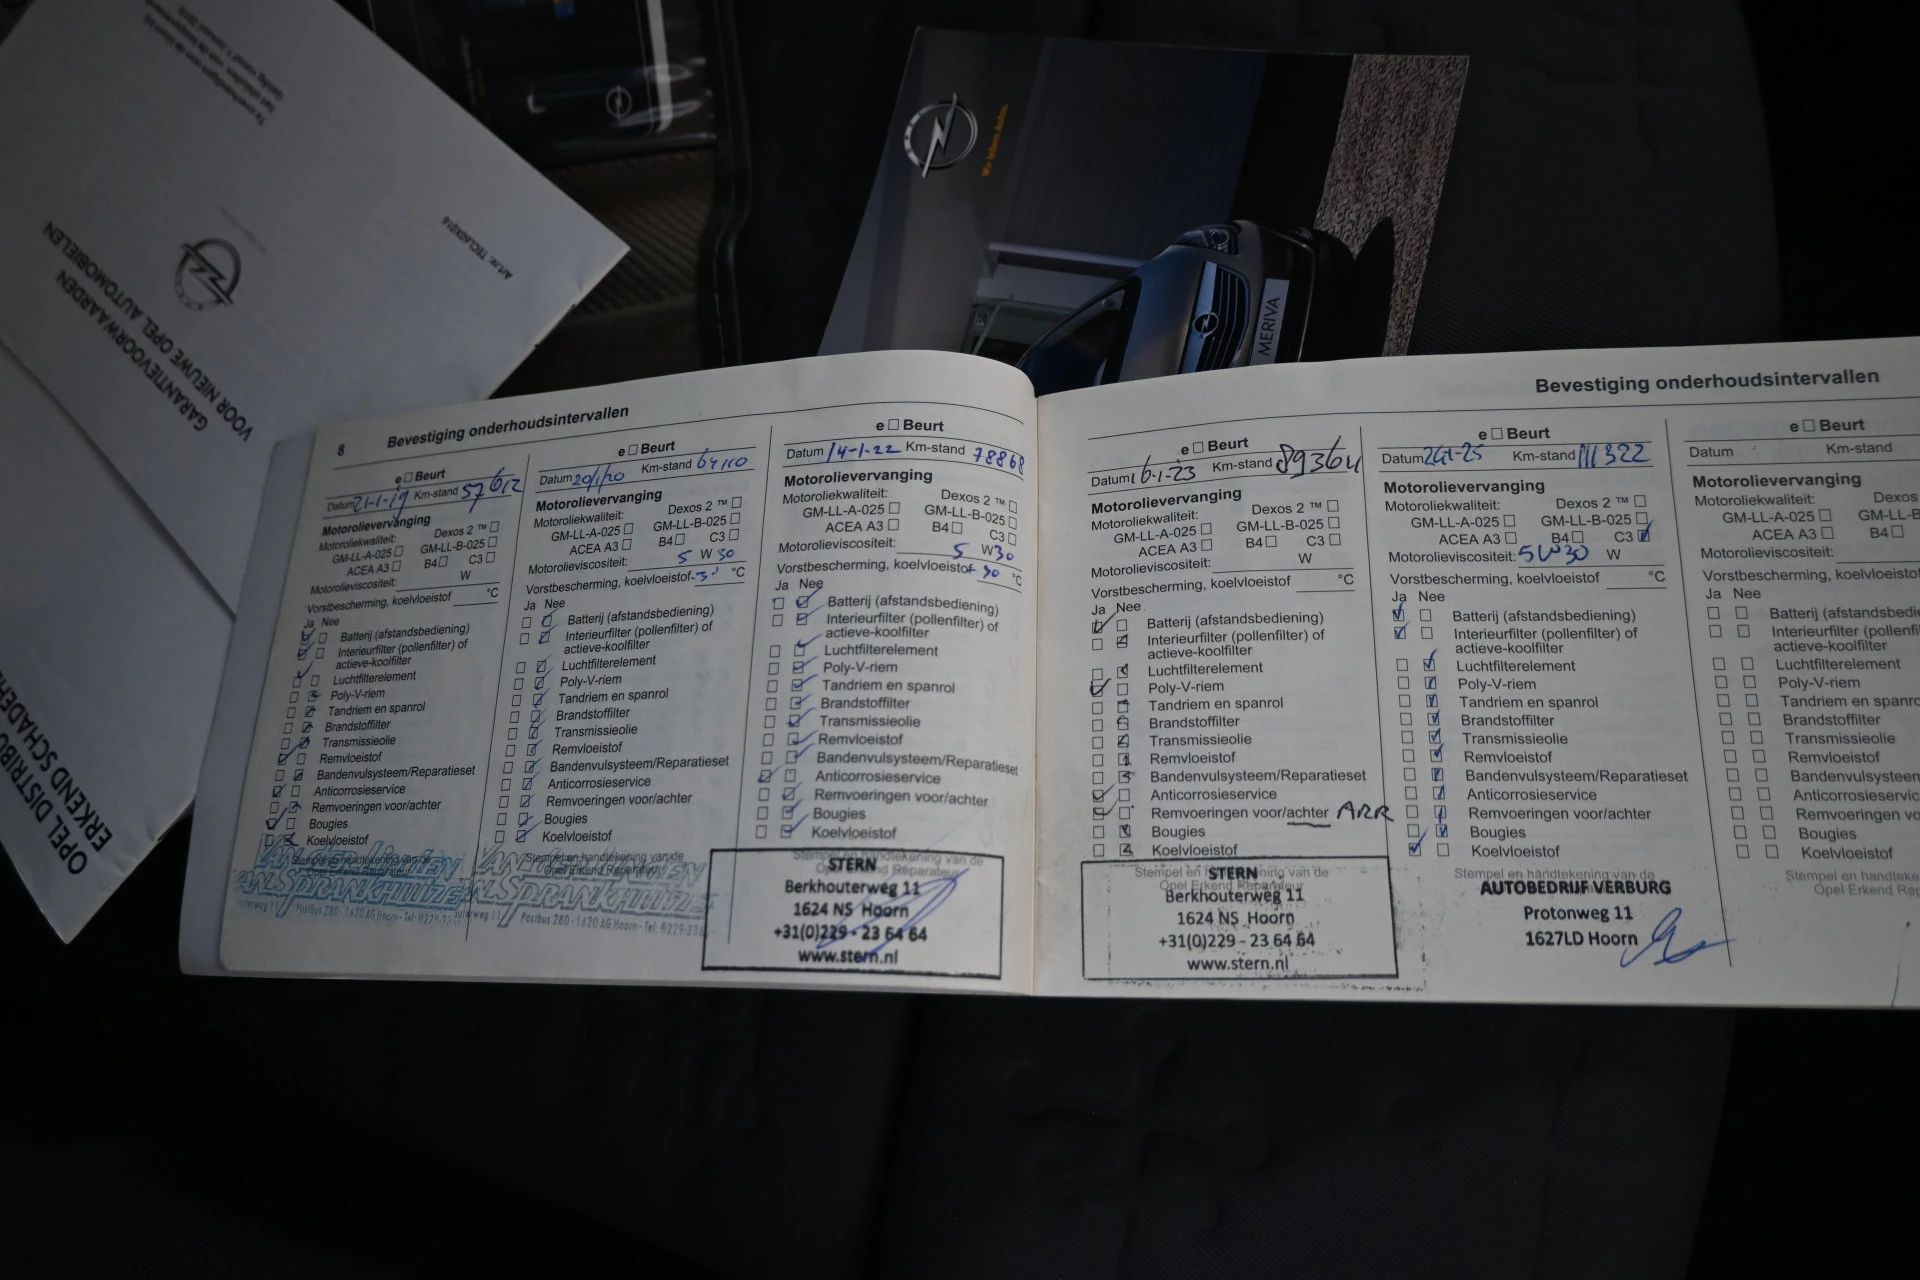 Te overhandigen aan de klant bij
het afleveren van de
Geldig vanaf 1 januari 2010
Art.nr. TECLADX016
GARANTIEVOORWAARDEN
VOOR NIEUWE OPEL AUTOMOBIELEN
OPEL DISTRIBU
ERKEND SCHADEHE
Wir leben Autos.
MERIVA
8
Bevestiging onderhoudsintervallen
e □ Beurt
Datum 21-1-19 Km-stand 57612
Motorolievervanging
Motoroliekwaliteit: Dexos 2 ™
GM-LL-A-025 GM-LL-B-025
ACEA A3 B4 C3
Motorolieviscositeit: W
Vorstbescherming, koelvloeistof °C
Ja Nee
Batterij (afstandsbediening)
Interieurfilter (pollenfilter) of
actieve-koolfilter
Luchtfilterelement
Poly-V-riem
Tandriem en spanrol
Brandstoffilter
Transmissieolie
Remvloeistof
Bandenvulsysteem/Reparatieset
Anticorrosieservice
Remvoeringen voor/achter
Bougies
Koelvloeistof
Stempel en handtekening van de
Opel Erkend Reparateur
VAN DER LINDEN
VAN SPRANKHUIZEN
Postbus 280 - 1620 AG Hoorn - Tel: 0229-
e □ Beurt
Datum 20/1/20 Km-stand 64110
Motorolievervanging
Motoroliekwaliteit: Dexos 2 ™
GM-LL-A-025 GM-LL-B-025
ACEA A3 B4 C3
Motorolieviscositeit: 5 W 30
Vorstbescherming, koelvloeistof °C
Ja Nee
Batterij (afstandsbediening)
Interieurfilter (pollenfilter) of
actieve-koolfilter
Luchtfilterelement
Poly-V-riem
Tandriem en spanrol
Brandstoffilter
Transmissieolie
Remvloeistof
Bandenvulsysteem/Reparatieset
Anticorrosieservice
Remvoeringen voor/achter
Bougies
Koelvloeistof
Stempel en handtekening van de
Opel Erkend Reparateur
VAN DER LINDEN
VAN SPRANKHUIZEN
Postbus 280 - 1620 AG Hoorn - Tel: 0229-
e □ Beurt
Datum 14-1-22 Km-stand 78868
Motorolievervanging
Motoroliekwaliteit: Dexos 2 ™
GM-LL-A-025 GM-LL-B-025
ACEA A3 B4 C3
Motorolieviscositeit: 5 W30
Vorstbescherming, koelvloeistof 30 °C
Ja Nee
Batterij (afstandsbediening)
Interieurfilter (pollenfilter) of
actieve-koolfilter
Luchtfilterelement
Poly-V-riem
Tandriem en spanrol
Brandstoffilter
Transmissieolie
Remvloeistof
Bandenvulsysteem/Reparatieset
Anticorrosieservice
Remvoeringen voor/achter
Bougies
Koelvloeistof
Stempel en handtekening van de
Opel Erkend Reparateur
STERN
Berkhouterweg 11
1624 NS Hoorn
+31(0)229 - 23 64 64
www.stern.nl
Bevestiging onderhoudsintervallen
e □ Beurt
Datum 16-1-23 Km-stand 89364
Motorolievervanging
Motoroliekwaliteit: Dexos 2 ™
GM-LL-A-025 GM-LL-B-025
ACEA A3 B4 C3
Motorolieviscositeit: W
Vorstbescherming, koelvloeistof °C
Ja Nee
Batterij (afstandsbediening)
Interieurfilter (pollenfilter) of
actieve-koolfilter
Luchtfilterelement
Poly-V-riem
Tandriem en spanrol
Brandstoffilter
Transmissieolie
Remvloeistof
Bandenvulsysteem/Reparatieset
Anticorrosieservice
Remvoeringen voor/achter
Bougies
Koelvloeistof
Stempel en handtekening van de
Opel Erkend Reparateur
STERN
Berkhouterweg 11
1624 NS Hoorn
+31(0)229 - 23 64 64
www.stern.nl
e □ Beurt
Datum Km-stand 111322
Motorolievervanging
Motoroliekwaliteit: Dexos 2 ™
GM-LL-A-025 GM-LL-B-025
ACEA A3 B4 C3
Motorolieviscositeit: 5W30 W
Vorstbescherming, koelvloeistof °C
Ja Nee
Batterij (afstandsbediening)
Interieurfilter (pollenfilter) of
actieve-koolfilter
Luchtfilterelement
Poly-V-riem
Tandriem en spanrol
Brandstoffilter
Transmissieolie
Remvloeistof
Bandenvulsysteem/Reparatieset
Anticorrosieservice
Remvoeringen voor/achter
Bougies
Koelvloeistof
Stempel en handtekening van de
AUTOBEDRIJF VERBURG
Protonweg 11
1627LD Hoorn
e □ Beurt
Datum Km-stand
Motorolievervanging
Motoroliekwaliteit: Dexos
GM-LL-A-025 GM-LL-B
ACEA A3 B4
Motorolieviscositeit:
Vorstbescherming, koelvloeistof
Ja Nee
Batterij (afstandsbedie
Interieurfilter (pollenfil
actieve-koolfilter
Luchtfilterelement
Poly-V-riem
Tandriem en spanro
Brandstoffilter
Transmissieolie
Remvloeistof
Bandenvulsysteem
Anticorrosieservic
Remvoeringen vo
Bougies
Koelvloeistof
Stempel en handteke
Opel Erkend Rep